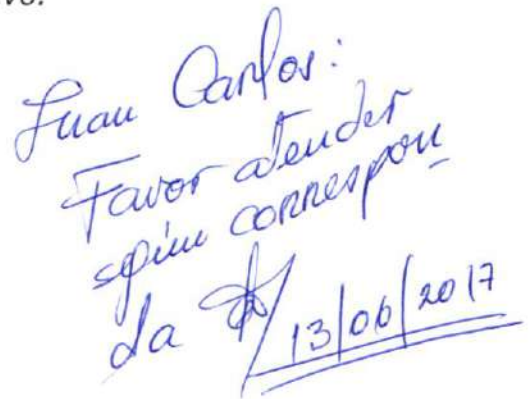 Juan Carlos:
Favor atender
según correspon_
da
13/06/2017